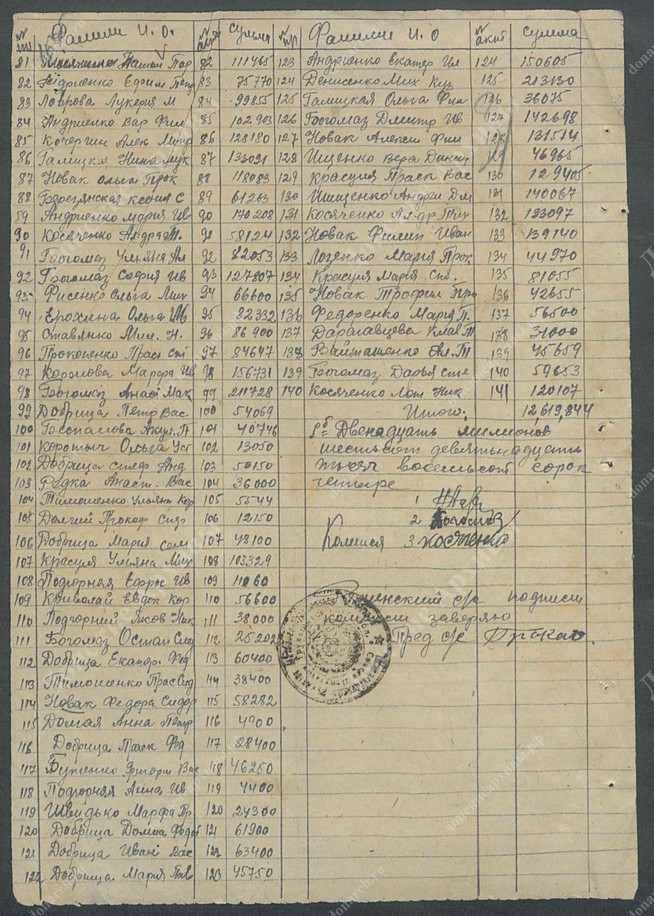 № п/п Фамилия И. О. № акта Сумма № п/р Фамилия И. О № акт сумма
81 82 111465 123 Андриенко Екатер Ил 124 150605
82 Андриенко Ефим Петр 83 75770 124 Денисенко Мих Куз 125 213130
83 Лаврова Лукерия М 84 99855 125 Галицкая Ольга Фил 126 36075
84 Андриенко Вар Фил 85 102903 126 Богомаз Дмитр Ив 127 142698
85 Кочергин Алек Митр 86 128180 127 Новак Алексей Фил 128 131514
86 Галицкая Нина Лук 87 133091 128 Ищенко Вера Данил 129 46965
87 Новак Ольга Прок 88 118093 129 Красуля Праск Вас 130 129405
88 Ксения С 89 61263 130 Ищенко Андрей Дм 131 140067
89 Андриенко Мария Ив 90 140208 131 Косяченко Ал-др Тих 132 123097
90 Косяченко Андрей Т. 91 58124 132 Новак Филип Иван 133 139140
91 Богомаз Ульяна Ал 92 82053 133 Логенко Мария Прок 134 44970
92 Богомаз София Ив 93 127807 134 Красуля Мария Сил. 135 81055
93 Рисенко Ольга Мих 94 66600 135 Новак Трофим Пр 136 42655
94 Ерохина Ольга Ив 95 82332 136 Федоренко Мария П. 137 56500
95 Ставянко Мих. Н. 96 86900 137 Клав Т 138 31000
96 Прокопенко Прас Ст 97 84647 138 Ал. Т 139 45659
97 Марфа Ив 98 156731 139 Богомаз Дарья Сте 140 59653
98 Богомаз Анас Мак 99 211728 140 Косяченко Ник 141 120107
99 Добрица Петр Вас 100 54069 Итого: 12,619,844
100 Акул. П 101 40746 Двенадцать милионов
101 Коротыч Ольга Уст 102 13050 шестьсот девятьнадцать
102 Добрица Стеф Анд 103 50150 тысяч восемьсот сорок
103 Редка Анаст. Вас 104 36000 четыре
104 Тимошенко Ульян Кор 105 5544 1
105 Долгий Прокоф Сид 106 12150 2
106 Добрица Мария Сам 107 48100 Комисия 3. Косяченко
107 Красуля Ульяна Мих 108 103329
108 Подгорная Ефрос Ив 109 11060
109 Криволай Евдок Кор 110 56600 с/с подписи
110 Подгорний Яков Ник 111 38000 комисии заверяю
111 Богомаз Остап Сид 112 25202 Пред с/с
112 Добрица Екатер Фед 113 60400
113 Тимошенко Прас Сид 114 38400
114 Новак Федора Сидор 115 58282
115 Долгая Анна Петр 116 4900
116 Добрица Праск Фед 117 28400
117 Бутенко Григори Вас 118 46250
118 Подгорная Анна Ив 119 4400
119 Швидько Марфа Гр 120 24300
120 Добрица Домна Федот 121 61900
121 Добрица Иван Вас 122 63400
122 Добрица Мария Пав 123 45750